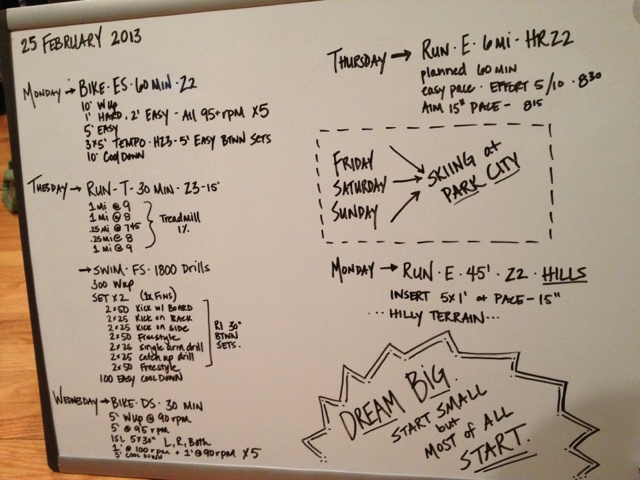 25 FEBRUARY 2013
MONDAY → BIKE · ES · 60 MIN · Z2
10' WUP
1' HARD, 2' EASY - All 95+ rpm X5
5' EASY
3x5' TEMPO · HZ3 · 5' EASY BTWN SETS
10' COOL DOWN
TUESDAY → RUN - T - 30 MIN · Z3 - 15'
1 Mi @ 9
1 Mi @ 8
.25 Mi @ 745
.25 Mi @ 8
1 Mi @ 9
Treadmill
1%
→ SWIM · FS · 1800 Drills
300 WUP
SET X2 (1x Fins)
2x50 Kick w/ BOARD
2x25 Kick on BACK
2x25 Kick on SIDE
2x50 Freestyle
2x25 single arm drill
2x25 catch up drill
2x50 Freestyle
RI 30"
BTWN
SETS.
100 EASY COOL DOWN
WEDNESDAY → BIKE · DS · 30 MIN
5' WUP @ 90 rpm
5' @ 95 rpm
ISL 5x30" L, R, Both
1' @ 100 rpm + 1' @ 90 rpm X5
5' COOL DOWN
THURSDAY → RUN · E · 6 Mi · HRZ2
planned 60 min
easy pace · EFFORT 5/10 · 830
AIM 15" PACE - 815
FRIDAY
SATURDAY
SUNDAY
→ SKIING at
PARK CITY
MONDAY → RUN · E · 45' · Z2 · HILLS
INSERT 5x1' at PACE - 15"
... HILLY TERRAIN ...
DREAM BIG.
START SMALL
but
MOST of ALL
START.